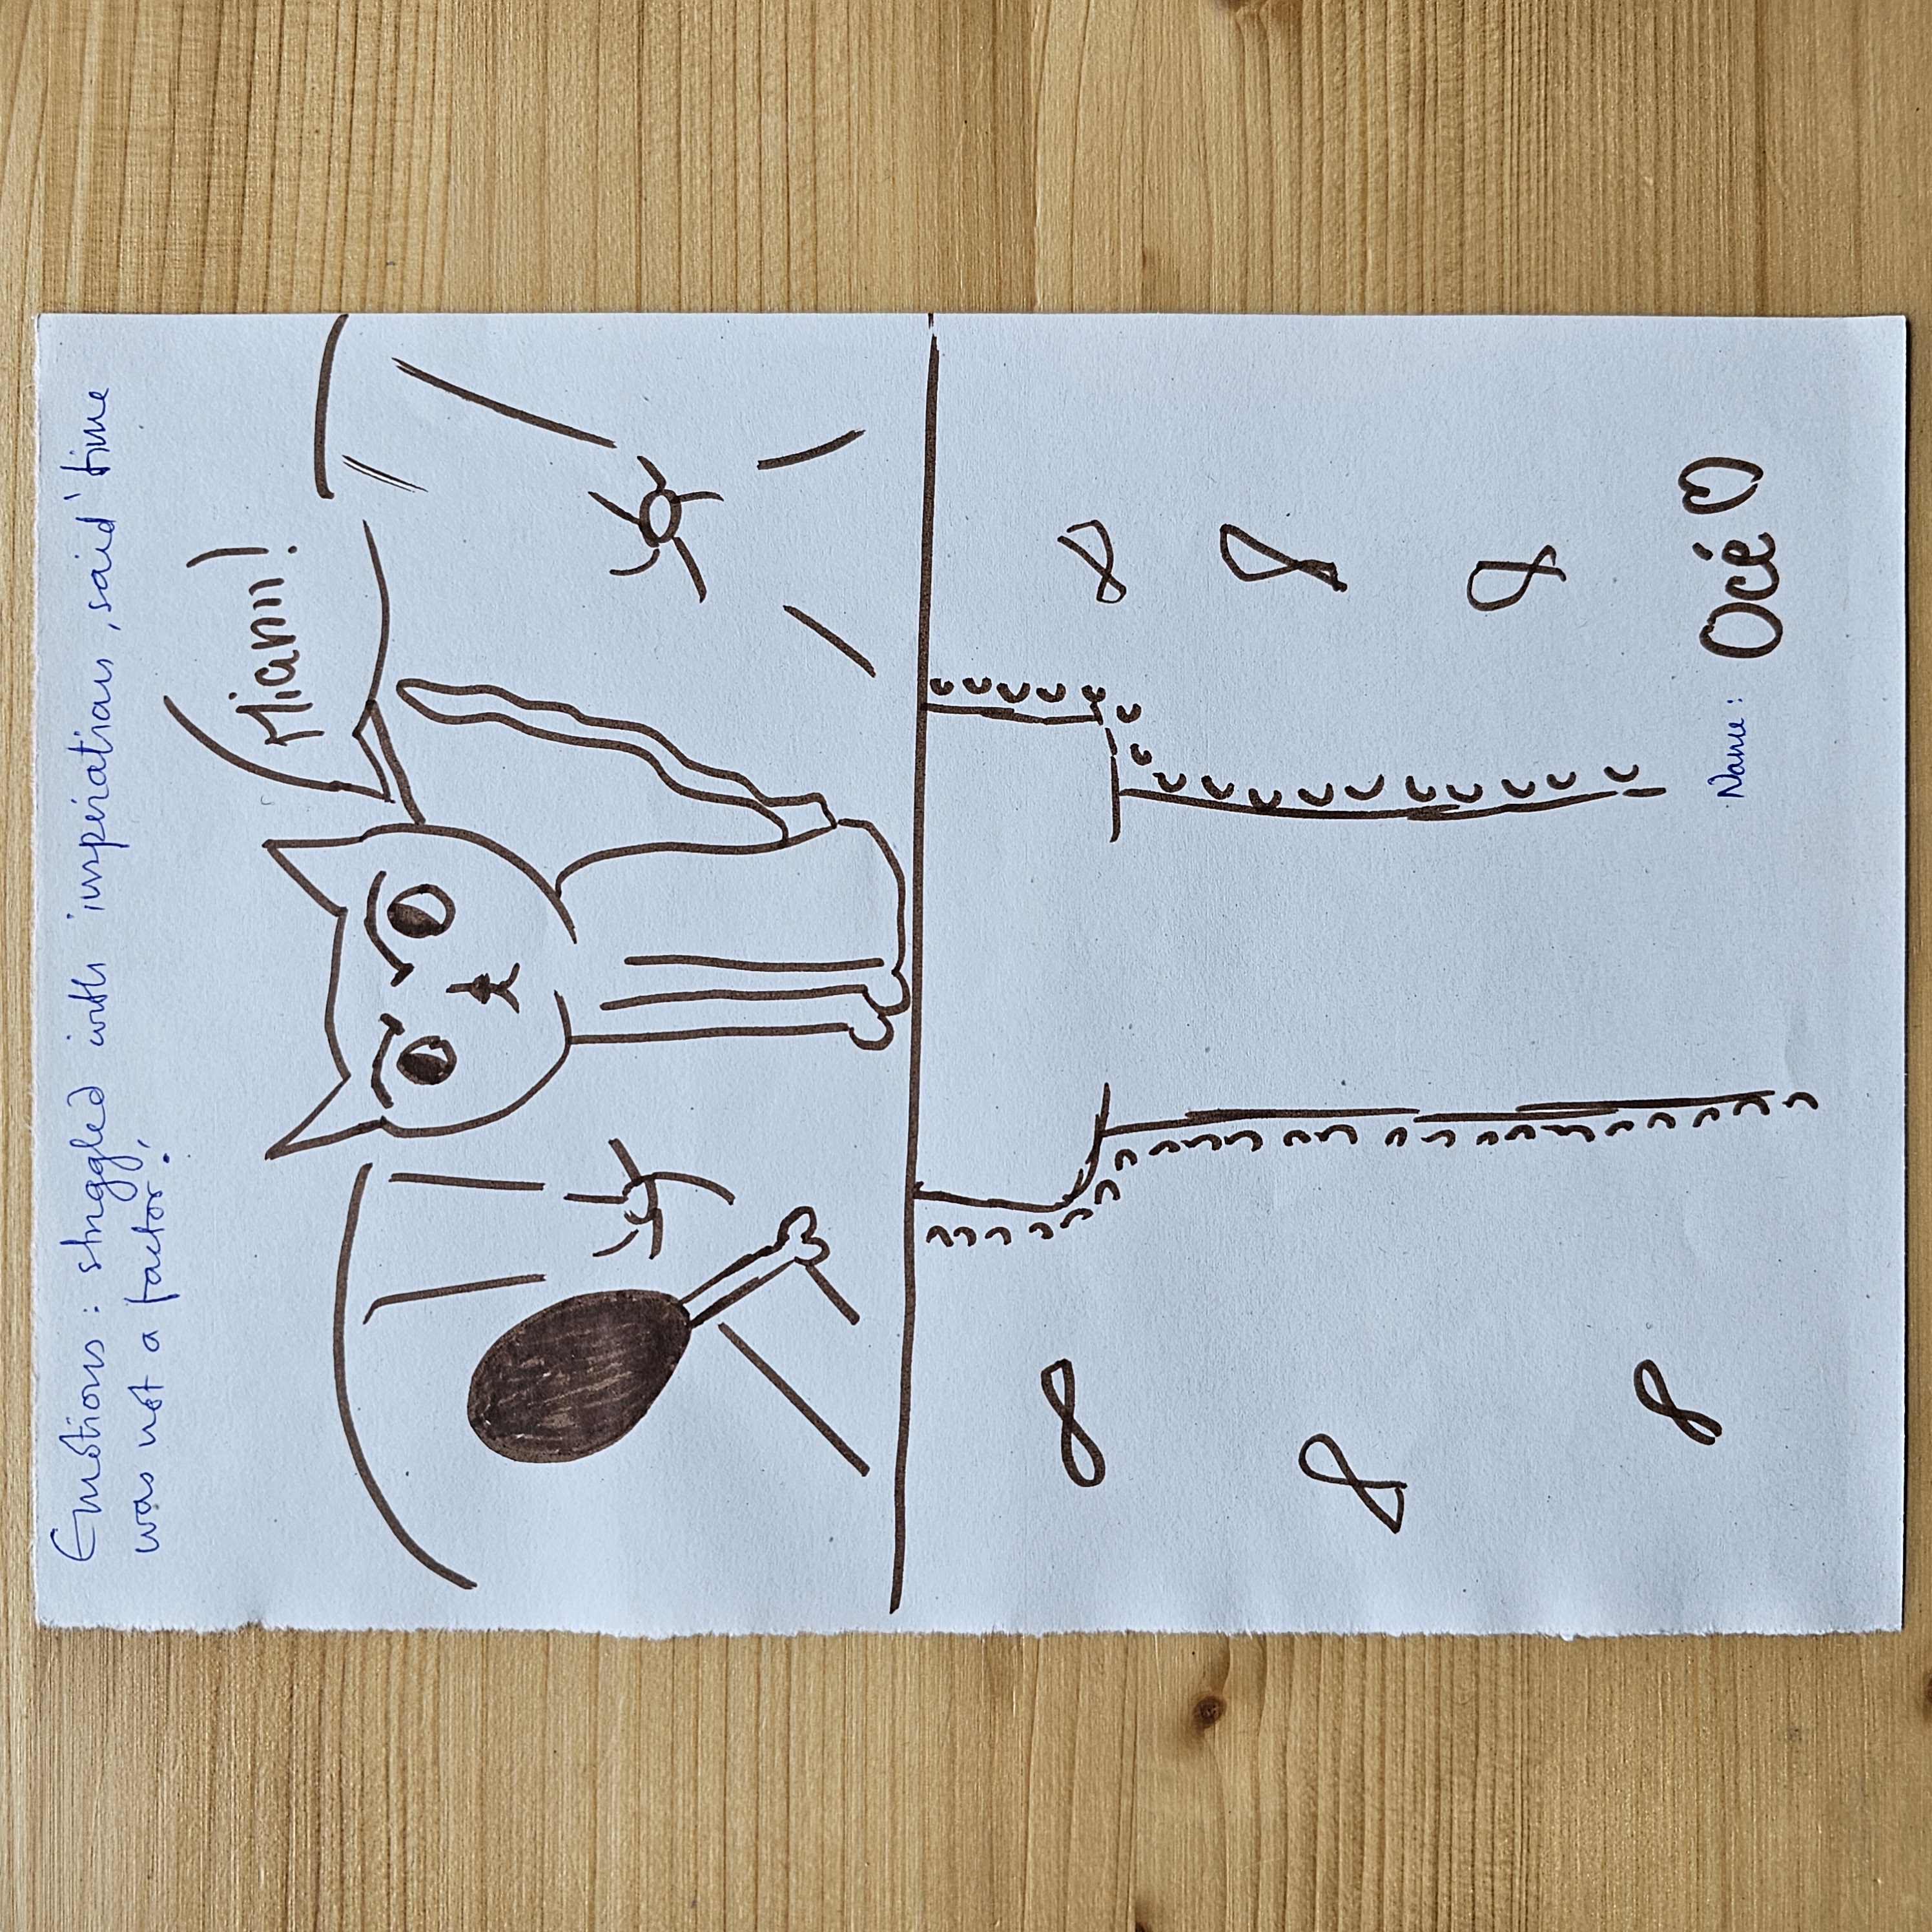 Emotions: struggled with inspiration, said 'time
was not a factor.'
Miann!
Name: Océ